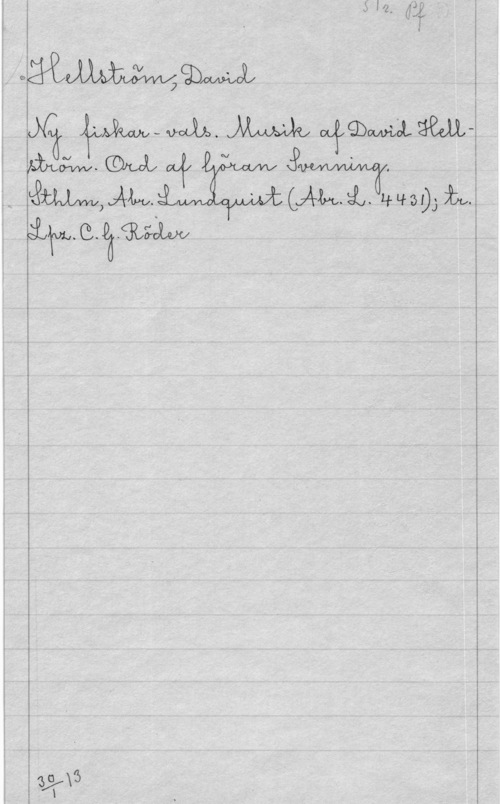 S 12. Pf
Hellström, David
Ny fiskar-vals. Musik af David Hell-
ström. Ord af Göran Svenning.
Sthlm, Abr. Lundquist (Abr. L. 4431); tr.
Lpz. C. G. Röder
30/1 13